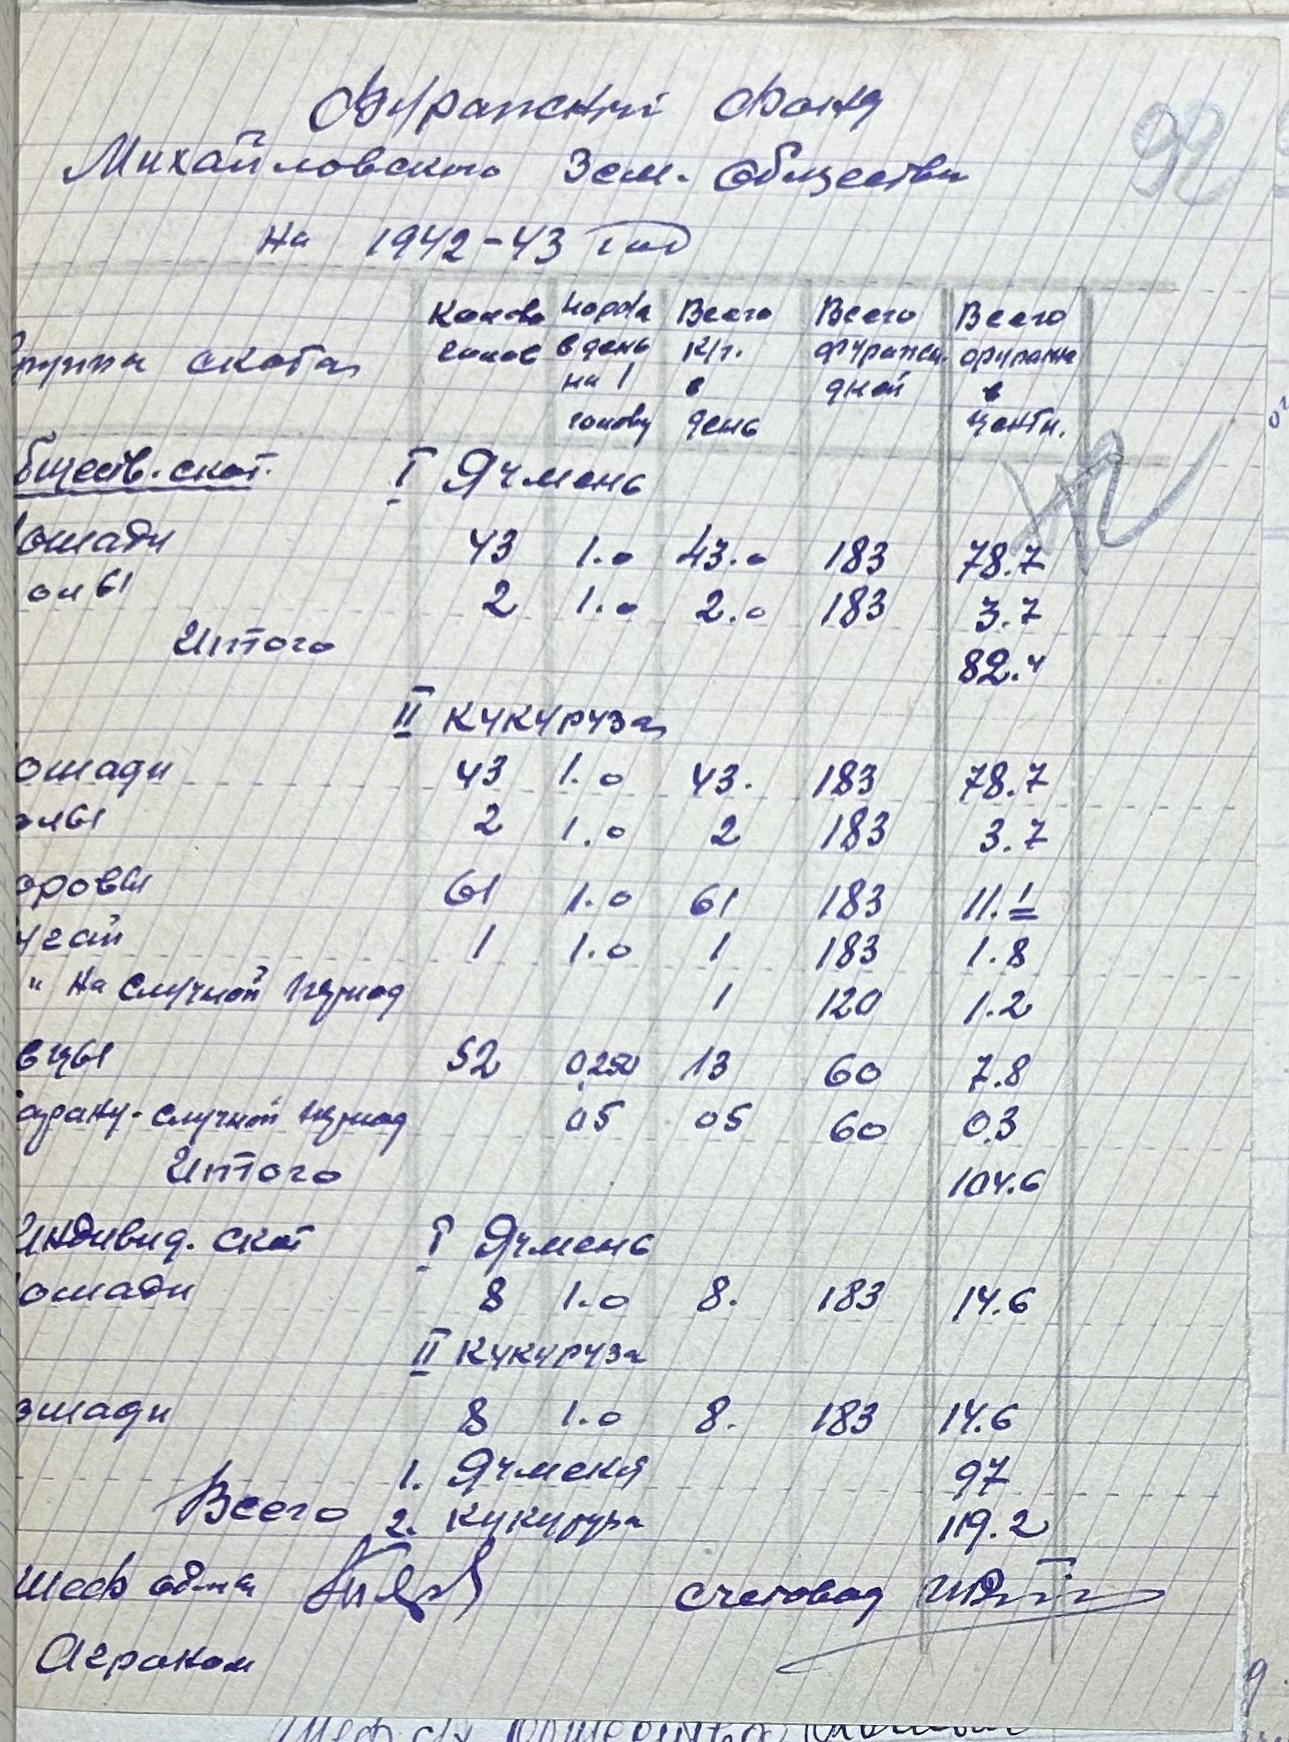 Фуражний Фонд
92
Михайловского Зем. Общества
на 1942-43 год
руппы скота Колво голов Норма в день на 1 голову Всего К/г. в день Всего фуражн. дней Всего фуража в центн.
бществ. скот. I Ячмень
ошади 43 1.0 43.0 183 78.7
олы 2 1.0 2.0 183 3.7
Итого 82.4
II Кукуруза
ошади 43 1.0 43. 183 78.7
олы 2 1.0 2 183 3.7
оровы 61 1.0 61 183 11.1
угай 1 1.0 1 183 1.8
" на случной период 1 120 1.2
вцы 52 0,250 13 60 7.8
арану - случной период 05 05 60 0.3
Итого 104.6
Индивид. скот I Ячмень
ошади 8 1.0 8. 183 14.6
II Кукуруза
ошади 8 1.0 8. 183 14.6
1. Ячменя 97
Всего 2. Кукуруза 119.2
шеф общ-ва счетовод
Агроном